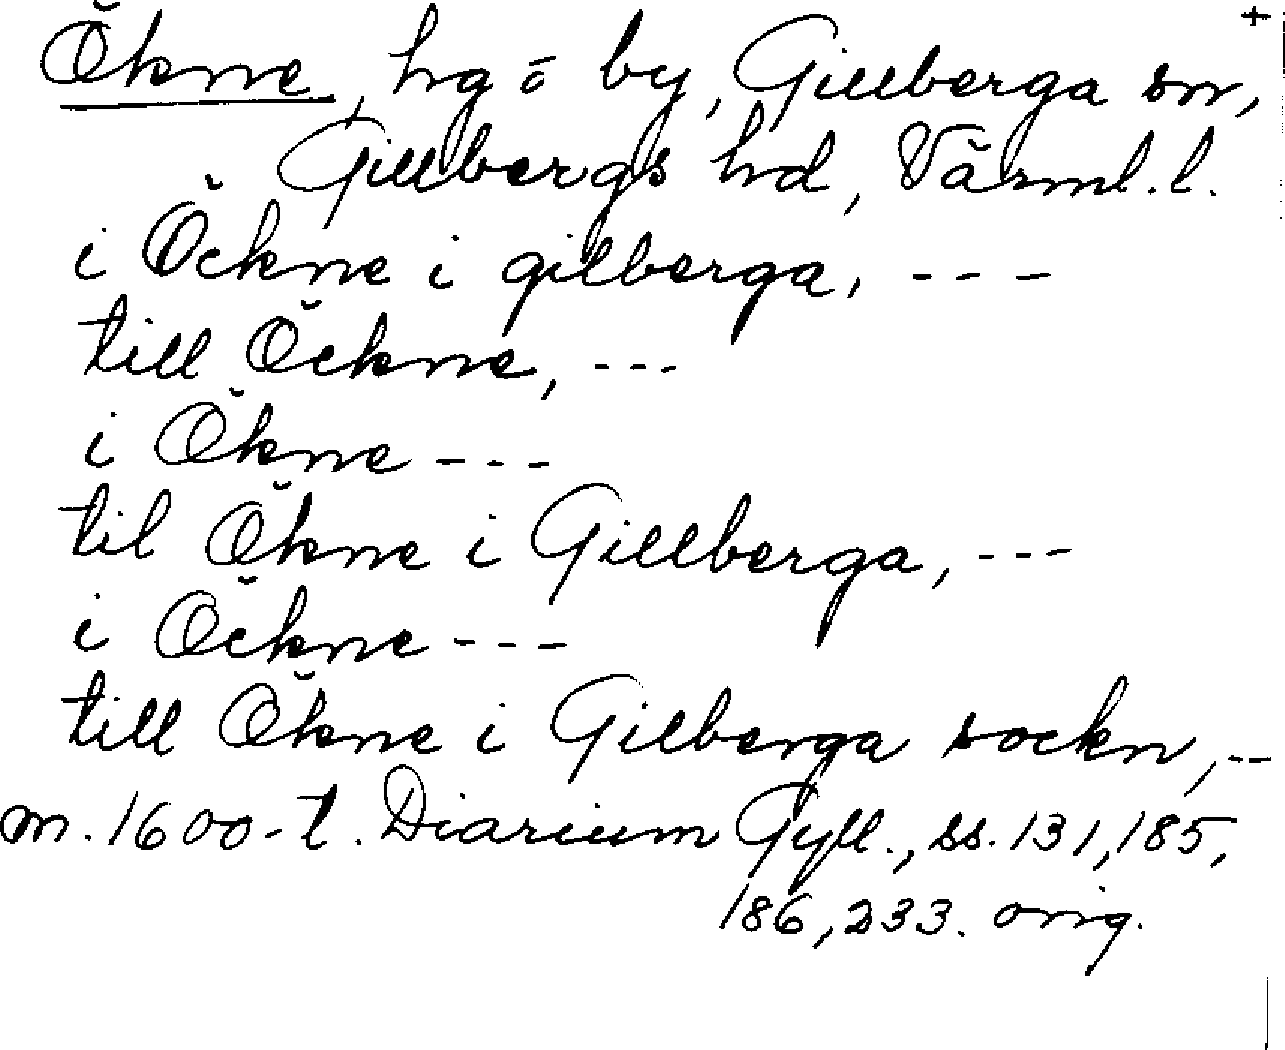 +
Ökne, hg o by, Gillberga sn,
Gillbergs hd, Värml. l.
i Öckne i gilberga, ---
till Öckne, ---
i Ökne ---
til Ökne i Gillberga, ---
i Öckne ---
till Ökne i Gilberga sockn, --
m. 1600-t. Diarium Gyll., ss. 131, 185,
186, 233. orig.